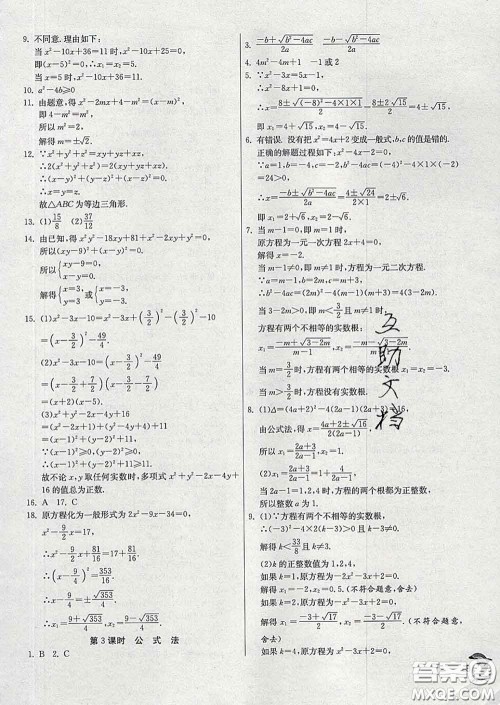 9. 不同意. 理由如下:
当 x²-10x+36=11 时, x²-10x+25=0,
即 (x-5)²=0, ∴x₁=x₂=5.
当 x=5 时, x²-10x+36=11.
10. a²-4b≥0
11. 由题意, 得 x²-2mx+4-m²=(x-m)²,
即 4-m²=m²,
所以 m²=2.
解得 m=±√2.
12. ∵x²+y²+z²=xy+yz+xz,
∴2(x²+y²+z²)=2(xy+yz+zx),
∴(x-y)²+(y-z)²+(z-x)²=0,
∴x=y=z.
故△ABC 为等边三角形.
13. (1) 15/8 (2) 37/12
14. 由已知, 得 x²y²-18xy+81+x²-2xy+y²=0,
所以 (xy-9)²+(x-y)²=0.
所以 {xy-9=0, x-y=0.
解得 {x=3, y=3 或 {x=-3, y=-3.
15. ∵x²-3x-10=x²-3x+(3/2)²-(3/2)²-10
=(x-3/2)²-49/4,
∴x²-3x-10=(x-3/2)²-(7/2)²
=(x-3/2+7/2)(x-3/2-7/2)
=(x+2)(x-5).
(2)x²+y²-2x-4y+16
=(x-1)²+(y-2)²+11.
∵(x-1)²≥0, (y-2)²≥0,
∴(x-1)²+(y-2)²≥0.
∴(x-1)²+(y-2)²+11≥11.
故不论 x,y 取任何实数时, 多项式 x²+y²-2x-4y+
16 的值总为正数.
16. A 17. C
18. 原方程化为一般形式为 2x²-9x-34=0,
∴x²-9/2x=17,
∴x²-9/2x+81/16=17+81/16,
∴(x-9/4)²=353/16,
∴x-9/4=±√353/4.
∴x₁=(9+√353)/4, x₂=(9-√353)/4.
第 3 课时 公 式 法
1. B 2. C
3. (-b+√(b²-4ac))/2a (-b-√(b²-4ac))/2a
4. 4m²-4m+1 -1 或 2
5. ∵x²-3x=5x-1,
∴x²-8x+1=0.
∴x=(8±√((-8)²-4×1×1))/(2×1)=(8±2√15)/2=4±√15,
即 x₁=4+√15, x₂=4-√15.
6. 有错误. 没有把 x²=4x+2 变成一般式, b,c 的值是错的.
正确的解题过程如下: x²-4x-2=0,
∵a=1,b=-4,c=-2, b²-4ac=(-4)²-4×1×(-2)
=24>0,
∴x=(-b±√(b²-4ac))/2a=(4±√24)/(2×1)=2±√6,
即 x₁=2+√6, x₂=2-√6.
7. 当 m-1=0, 即 m=1 时,
原方程为一元一次方程 2x+4=0,
解得 x=-2.
当 m-1≠0, 即 m≠1 时, 方程为一元二次方程.
∵a=m-1,b=2m,c=m+3,
∴b²-4ac=(2m)²-4(m-1)(m+3)=4(3-2m).
当 3-2m>0, 即 m<3/2 且 m≠1 时,
方程有两个不相等的实数根:
x₁=(-m+√(3-2m))/(m-1), x₂=(-m-√(3-2m))/(m-1).
当 m=3/2 时, 方程有两个相等的实数根 x₁=x₂=-3.
当 m>3/2 时, 方程没有实数根.
8. (1)Δ=(4a+2)²-4(2a-1)(2a+3)=16,
由公式法, 得 x=(4a+2±√16)/(2(2a-1)),
所以 x₁=(2a+3)/(2a-1), x₂=1.
(2)∵x₁=(2a+3)/(2a-1)=1+4/(2a-1),
当 2a-1=1,2,4 时, 方程的两个根都为正整数.
所以整数 a=1.
9. (1)∵方程有两个不相等的实数根,
∴(-3)²-4×2(k-3)>0,
解得 k<33/8 且 k≠3.
(2)k 的正整数值为 1,2,4.
如果 k=1, 原方程为 -2x²-3x+2=0,
解得 x₁=-2, x₂=0.5. (不符合题意, 舍去)
如果 k=2, 原方程为 -x²-3x+2=0.
解得 x₁=
不符合题意,
舍去)
如果 k=4, 原方程为 x²-3x+2=0,
互助文档
答案圈
MXQE.COM